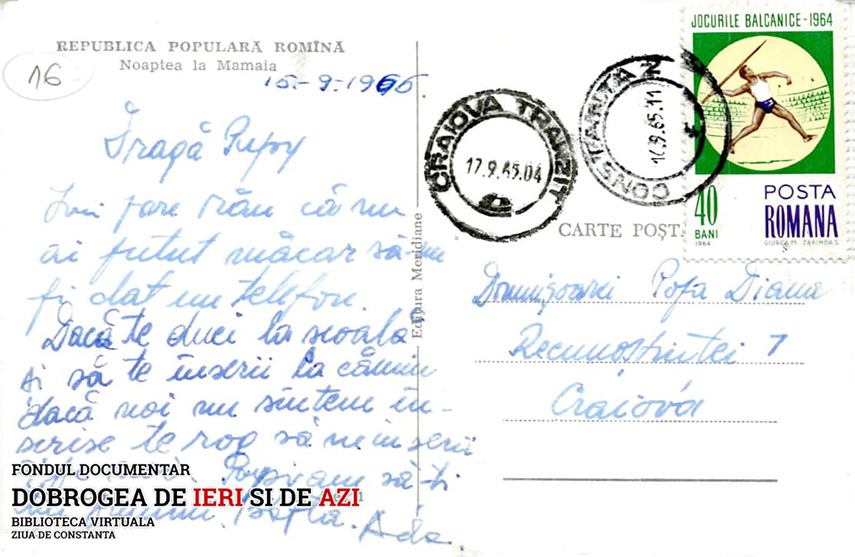 REPUBLICA POPULARĂ ROMÎNĂ
Noaptea la Mamaia
16
15-9-1965.
Dragă Pupy
Îmi pare rău că nu
ai putut măcar să-mi
fi dat un telefon.
Dacă te duci la școală
și să te înscrii la cămin
dacă noi nu sîntem în-
scrise te rog să ne înscrii
să-ți
Ada.
Editura Meridiane
CRAIOVA TRANZIT
17.9.65.04
CONSTANȚA 2
16.9.65.11
JOCURILE BALCANICE-1964
40
BANI
1964
POSTA
ROMANA
CARTE POȘT
Domnișoarei Popa Diana
Recunoștinței 7
Craiova
FONDUL DOCUMENTAR
DOBROGEA DE IERI SI DE AZI
BIBLIOTECA VIRTUALA
ZIUA DE CONSTANTA